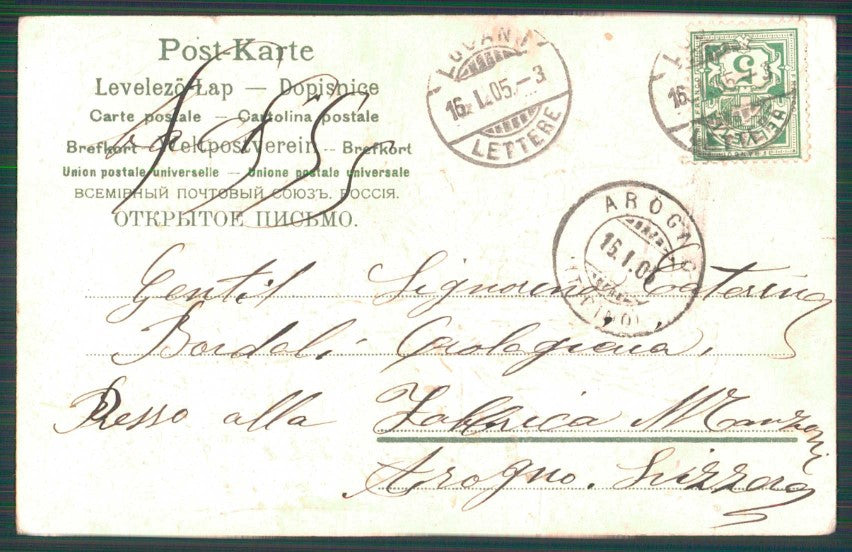 Post-Karte
Levelező-Lap — Dopisnice
Carte postale — Cartolina postale
Brefkort — Weltpostverein — Brefkort
Union postale universelle — Unione postale universale
ВСЕМІРНЫЙ ПОЧТОВЫЙ СОЮЗЪ. РОССІЯ.
ОТКРЫТОЕ ПИСЬМО.
LUGANO
16. I. 05. – 3
LETTERE
5
HELVETIA
AROGNO
16. I. 05
(TICINO)
Gentil Signorina Caterina
Bordoli Orologiaia,
Presso alla Fabbrica Manzoni
Arogno. Svizzera